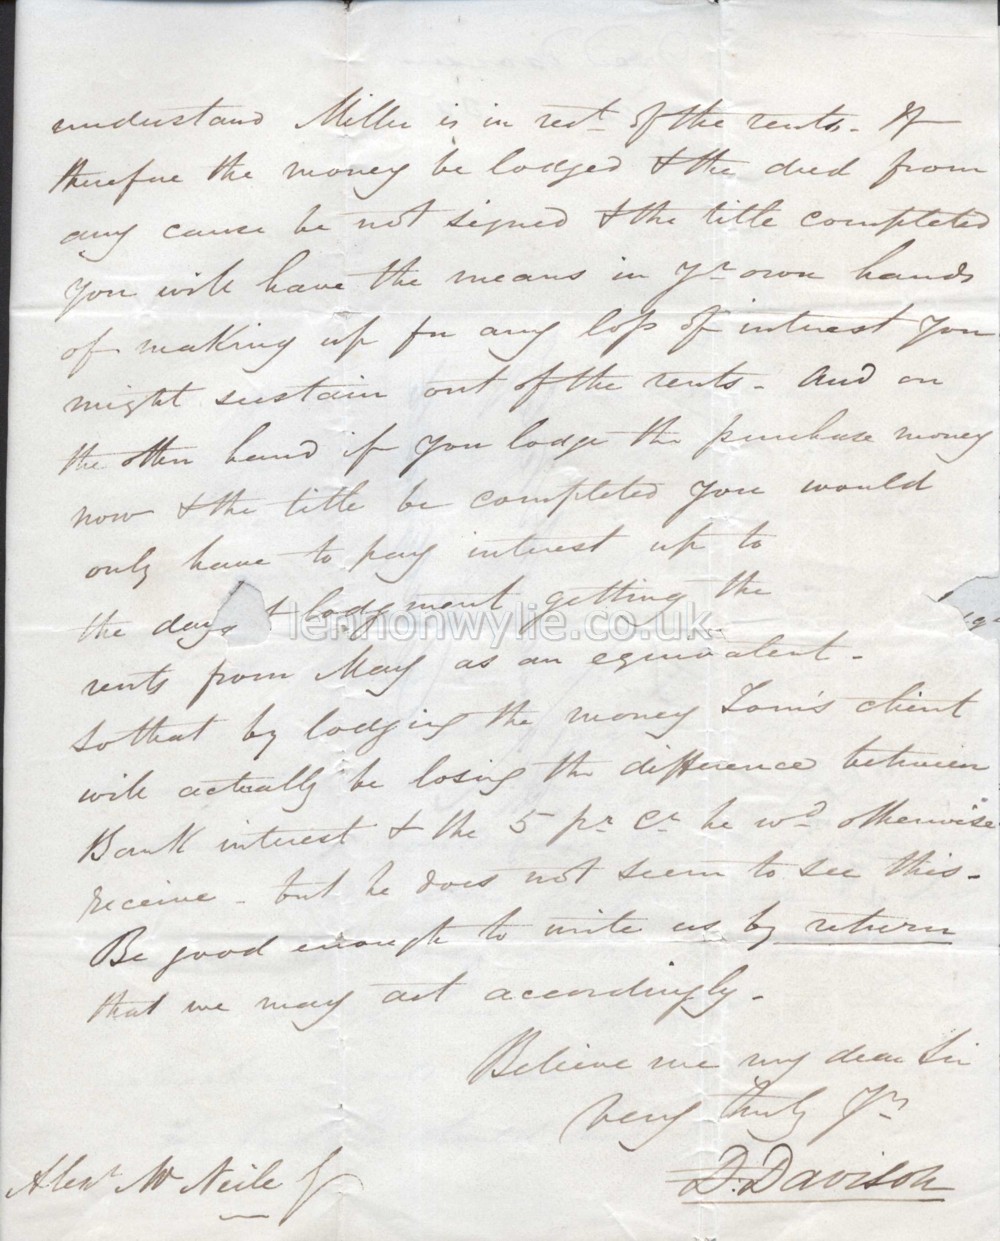 understand Miller is in rect. of the rents. If
therefore the money be lodged & the deed from
any cause be not signed & the title completed
you will have the means in yr own hands
of making up for any loss of interest you
might sustain out of the rents. And on
the other hand if you lodge the purchase money
now & the title be completed you would
only have to pay interest up to
the day lodgment getting the
rents from May as an equivalent.
So that by lodging the money Tom's client
will actually be losing the difference between
Bank interest & the 5 pr Ct he wd otherwise
receive - but he does not seem to see this.
Be good enough to write us by return
that we may act accordingly.
Believe me my dear Sir
very truly Yrs
D. Davison
Alexr McNeile
lennonwylie.co.uk